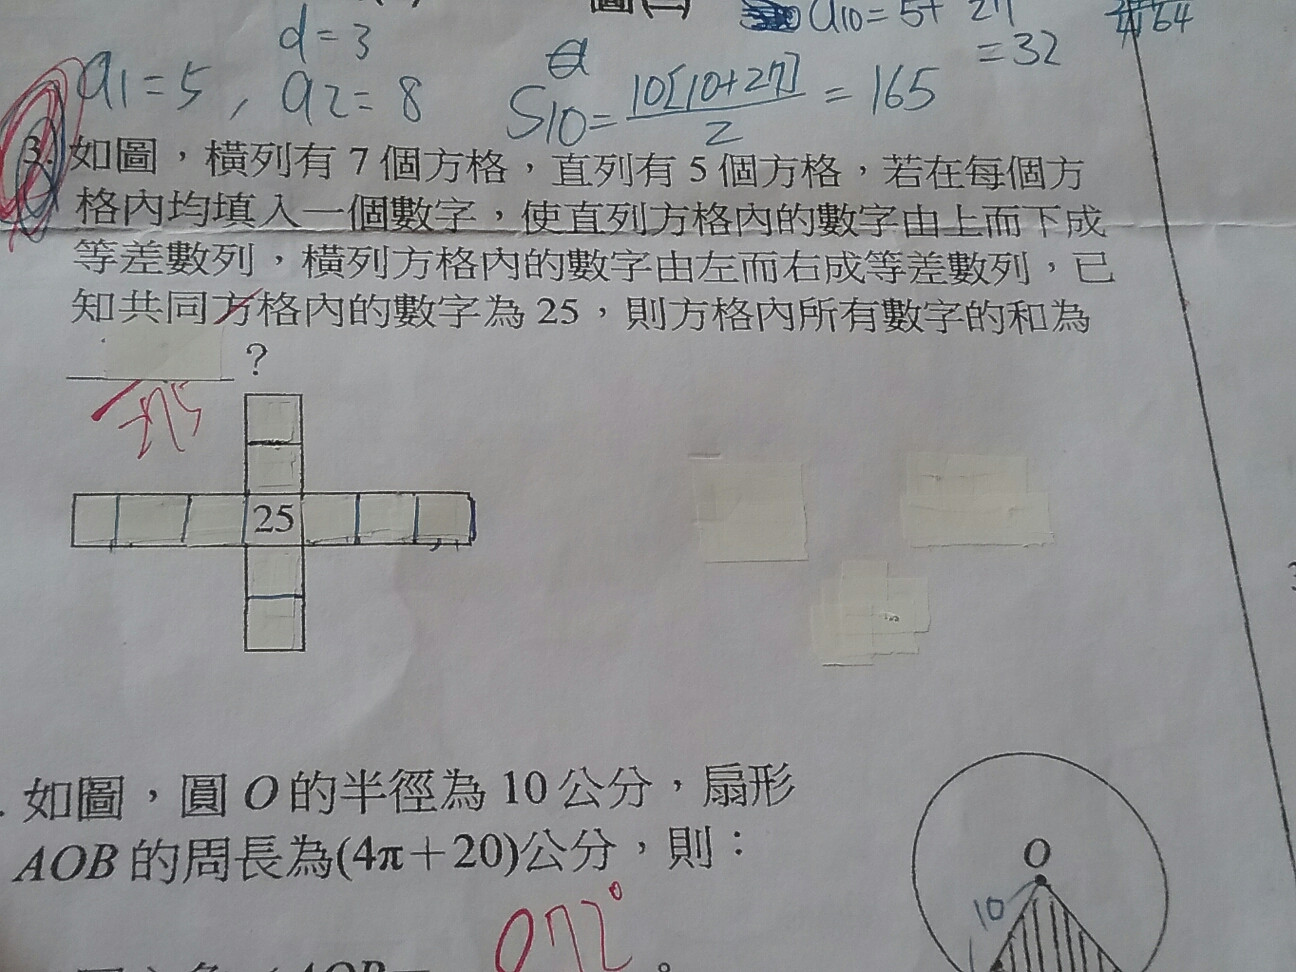 d=3
a10=5+27
=32
a1=5, a2=8
S10=10[10+27]/2=165
3. 如圖，橫列有 7 個方格，直列有 5 個方格，若在每個方
格內均填入一個數字，使直列方格內的數字由上而下成
等差數列，橫列方格內的數字由左而右成等差數列，已
知共同方格內的數字為 25，則方格內所有數字的和為
？
25
. 如圖，圓 O 的半徑為 10 公分，扇形
AOB 的周長為(4π＋20)公分，則：
O
10
72°